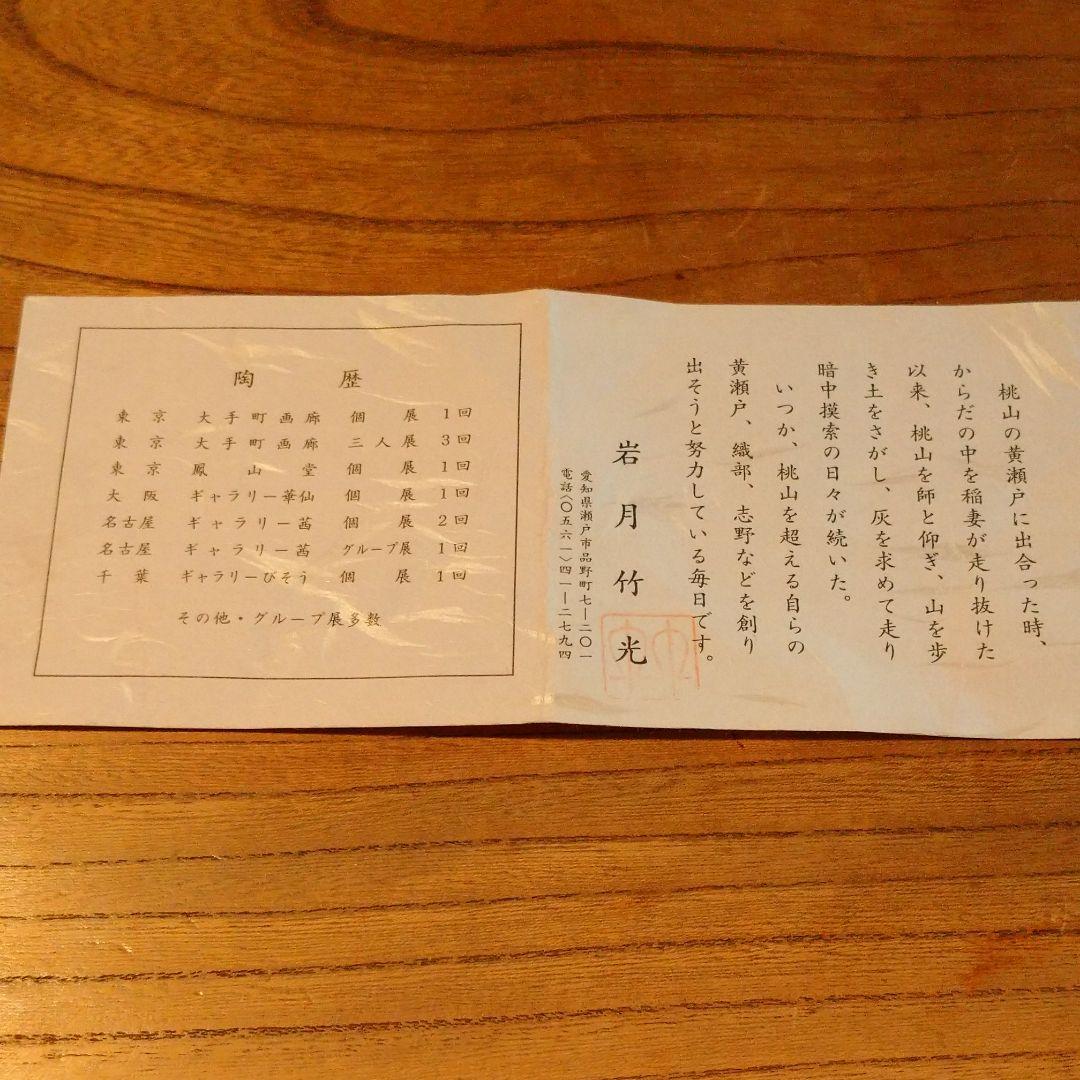 桃山の黄瀬戸に出合った時、
からだの中を稲妻が走り抜けた
以来、桃山を師と仰ぎ、山を歩
き土をさがし、灰を求めて走り
暗中摸索の日々が続いた。
いつか、桃山を超える自らの
黄瀬戸、織部、志野などを創り
出そうと努力している毎日です。
岩月竹光
愛知県瀬戸市品野町七―二〇一
電話〈〇五六一〉四一―二七九四
陶歴
東京 大手町画廊 個展 1回
東京 大手町画廊 三人展 3回
東京 鳳山堂 個展 1回
大阪 ギャラリー華仙 個展 1回
名古屋 ギャラリー茜 個展 2回
名古屋 ギャラリー茜 グループ展 1回
千葉 ギャラリーびそう 個展 1回
その他・グループ展多数